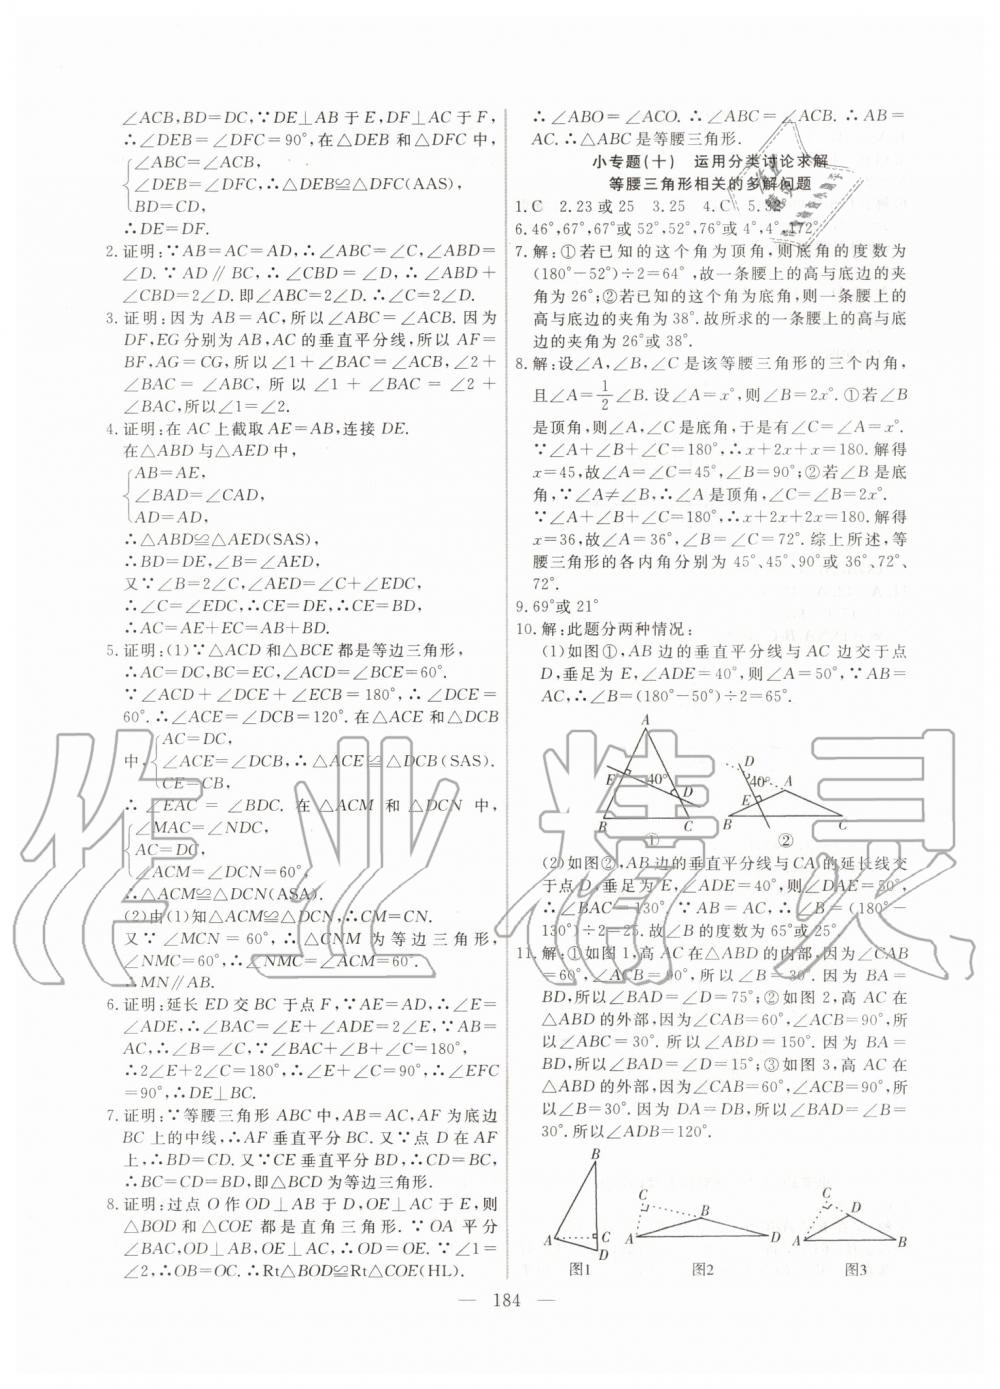 ∠ACB,BD=DC,∵DE⊥AB于E,DF⊥AC于F,
∴∠DEB=∠DFC=90°,在△DEB和△DFC中,
∠ABC=∠ACB,
∠DEB=∠DFC,∴△DEB≌△DFC(AAS),
BD=CD,
∴DE=DF.
2. 证明:∵AB=AC=AD,∴∠ABC=∠C,∠ABD=
∠D.∵AD∥BC,∴∠CBD=∠D,∴∠ABD+
∠CBD=2∠D.即∠ABC=2∠D.∴∠C=2∠D.
3. 证明:因为AB=AC,所以∠ABC=∠ACB.因为
DF,EG分别为AB,AC的垂直平分线,所以AF=
BF,AG=CG,所以∠1+∠BAC=∠ACB,∠2+
∠BAC=∠ABC,所以∠1+∠BAC=∠2+
∠BAC,所以∠1=∠2.
4. 证明:在AC上截取AE=AB,连接DE.
在△ABD与△AED中,
AB=AE,
∠BAD=∠CAD,
AD=AD,
∴△ABD≌△AED(SAS),
∴BD=DE,∠B=∠AED,
又∵∠B=2∠C,∠AED=∠C+∠EDC,
∴∠C=∠EDC,∴CE=DE,∴CE=BD,
∴AC=AE+EC=AB+BD.
5. 证明:(1)∵△ACD和△BCE都是等边三角形,
∴AC=DC,BC=EC,∠ACD=∠BCE=60°.
∵∠ACD+∠DCE+∠ECB=180°,∴∠DCE=
60°.∴∠ACE=∠DCB=120°.在△ACE和△DCB
中,
AC=DC,
∠ACE=∠DCB,∴△ACE≌△DCB(SAS).
CE=CB,
∴∠EAC=∠BDC.在△ACM和△DCN中,
∠MAC=∠NDC,
AC=DC,
∠ACM=∠DCN=60°,
∴△ACM≌△DCN(ASA).
(2)由(1)知△ACM≌△DCN,∴CM=CN.
又∵∠MCN=60°,∴△CNM为等边三角形,
∠NMC=60°.∴∠NMC=∠ACM=60°.
∴MN∥AB.
6. 证明:延长ED交BC于点F,∵AE=AD,∴∠E=
∠ADE,∴∠BAC=∠E+∠ADE=2∠E,∵AB=
AC,∴∠B=∠C,∵∠BAC+∠B+∠C=180°,
∴2∠E+2∠C=180°,∴∠E+∠C=90°,∴∠EFC
=90°,∴DE⊥BC.
7. 证明:∵等腰三角形ABC中,AB=AC,AF为底边
BC上的中线,∴AF垂直平分BC.又∵点D在AF
上,∴BD=CD.又∵CE垂直平分BD,∴CD=BC,
∴BC=CD=BD,即△BCD为等边三角形.
8. 证明:过点O作OD⊥AB于D,OE⊥AC于E,则
△BOD和△COE都是直角三角形.∵OA平分
∠BAC,OD⊥AB,OE⊥AC,∴OD=OE.∵∠1=
∠2,∴OB=OC.∴Rt△BOD≌Rt△COE(HL).
∴∠ABO=∠ACO.∴∠ABC=∠ACB.∴AB=
AC.∴△ABC是等腰三角形.
小专题(十) 运用分类讨论求解
等腰三角形相关的多解问题
1.C 2.23或25 3.25 4.C
6.46°,67°,67°或52°,52°,76°或4°,4°,172°
7. 解:①若已知的这个角为顶角,则底角的度数为
(180°-52°)÷2=64°,故一条腰上的高与底边的夹
角为26°;②若已知的这个角为底角,则一条腰上的
高与底边的夹角为38°.故所求的一条腰上的高与底
边的夹角为26°或38°.
8. 解:设∠A、∠B、∠C是该等腰三角形的三个内角,
且∠A=1/2∠B.设∠A=x°,则∠B=2x°.①若∠B
是顶角,则∠A、∠C是底角,于是有∠C=∠A=x°.
∵∠A+∠B+∠C=180°,∴x+2x+x=180.解得
x=45,故∠A=∠C=45°,∠B=90°;②若∠B是底
角,∵∠A≠∠B,∴∠A是顶角,∠C=∠B=2x°.
∵∠A+∠B+∠C=180°,∴x+2x+2x=180.解得
x=36,故∠A=36°,∠B=∠C=72°.综上所述,等
腰三角形的各内角分别为45°、45°、90°或36°、72°、
72°.
9.69°或21°
10. 解:此题分两种情况:
(1)如图①,AB边的垂直平分线与AC边交于点
D,垂足为E,∠ADE=40°,则∠A=50°,∵AB=
AC,∴∠B=(180°-50°)÷2=65°.
A
E
40°
D
B
C
①
D
40°
A
E
B
C
②
(2)如图②,AB边的垂直平分线与CA的延长线交
于点D,垂足为E,∠ADE=40°,则∠DAE=50°,
∴∠BAC=130°.∵AB=AC,∴∠B=(180°-
130°)÷2=25°.故∠B的度数为65°或25°.
11. 解:①如图1,高AC在△ABD的内部,因为∠CAB
=60°,∠ACB=90°,所以∠B=30°.因为BA=
BD,所以∠BAD=∠D=75°;②如图2,高AC在
△ABD的外部,因为∠CAB=60°,∠ACB=90°,所
以∠ABC=30°.所以∠ABD=150°.因为BA=
BD,所以∠BAD=∠D=15°;③如图3,高AC在
△ABD的外部,因为∠CAB=60°,∠ACB=90°,所
以∠B=30°.因为DA=DB,所以∠BAD=∠B=
30°.所以∠ADB=120°.
B
A
C
D
图1
C
B
A
D
图2
C
D
A
B
图3
— 184 —
作业精灵